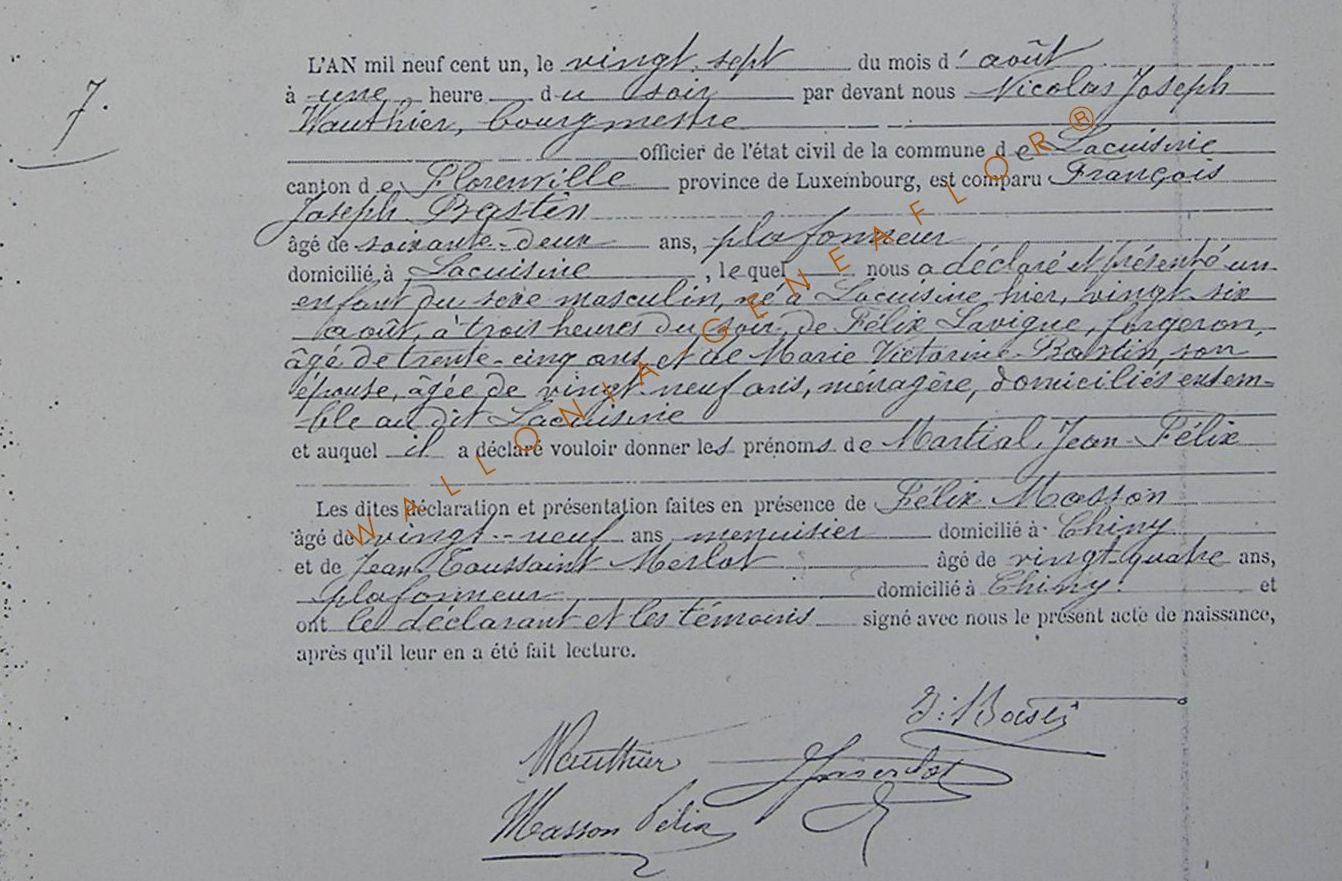 7.
L'AN mil neuf cent un, le vingt-sept du mois d' août
à une heure du soir par devant nous Nicolas Joseph
Wauthier, bourgmestre
officier de l'état civil de la commune de Lacuisine
canton de Florenville province de Luxembourg, est comparu François
Joseph Bastin
âgé de soixante-deux ans, plafonneur
domicilié à Lacuisine, lequel nous a déclaré et présenté un
enfant du sexe masculin, né à Lacuisine hier, vingt-six
août, à trois heures du soir, de Félix Lavigne, forgeron,
âgé de trente-cinq ans et de Marie Victorine Bastin, son
épouse, âgée de vingt-neuf ans, ménagère, domiciliés ensem-
ble au dit Lacuisine
et auquel il a déclaré vouloir donner les prénoms de Martial, Jean-Félix
Les dites déclaration et présentation faites en présence de Félix Masson
âgé de vingt-neuf ans menuisier domicilié à Chiny
et de Jean Toussaint Merlot âgé de vingt-quatre ans,
plafonneur domicilié à Chiny. et
ont le déclarant et les témoins signé avec nous le présent acte de naissance,
après qu'il leur en a été fait lecture.
Wauthier
Masson Félix
WALLONIA GENEAFLOR®